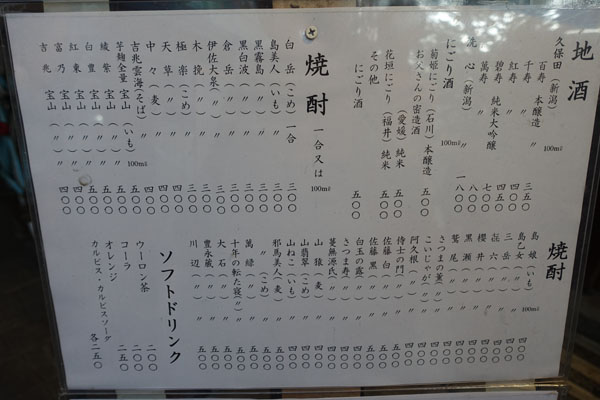 地酒
久保田（新潟）
百寿 本醸造 100㎖ 三五〇
千寿 〃 〃 四五〇
紅寿 〃 四〇〇
碧寿 純米大吟醸 七〇〇
萬寿 〃 一八〇〇
洗心（新潟） 〃 一八〇〇
にごり酒 100㎖
菊姫にごり（石川）本醸造 五〇〇
お父さんの密造酒
（愛媛）純米 五〇〇
花垣にごり（福井）純米 五〇〇
その他
にごり酒 五〇〇
焼酎 一合又は 100㎖
白岳（こめ）一合 三〇〇
島美人（いも）〃 三〇〇
黒霧島（〃）〃 三〇〇
黒白波（〃）〃 三〇〇
倉岳（〃）〃 三〇〇
伊佐大泉（〃）〃 三〇〇
木挽（〃）〃 三〇〇
極楽（こめ）〃 四〇〇
天草（〃）〃 四〇〇
中々（麦）〃 四〇〇
吉兆雲海（そば）〃 四〇〇
芋麹全量 宝山（いも）100㎖ 五〇〇
綾紫 宝山（〃）〃 五〇〇
白豊 宝山（〃）〃 五〇〇
紅東 宝山（〃）〃 四〇〇
富乃 宝山（〃）〃 四〇〇
吉兆 宝山（〃）〃 四〇〇
焼酎
島娘（いも）100㎖ 四〇〇
島乙女（〃）〃 四〇〇
三岳（〃）〃 四〇〇
㐂六（〃）〃 四〇〇
櫻井（〃）〃 四〇〇
黒瀬（〃）〃 四〇〇
鷲尾（〃）〃 四〇〇
さつまの薫（〃）〃 四〇〇
こいじゃが（〃）〃 四〇〇
阿久根（〃）〃 四〇〇
侍士の門（〃）〃 五〇〇
佐藤 白（〃）〃 五〇〇
佐藤 黒（〃）〃 五〇〇
白玉の露（〃）〃 四〇〇
さつま寿（〃）〃 四〇〇
蔓無源氏（〃）〃 五〇〇
山猿（麦）〃 四〇〇
山翡翠（こめ）〃 四〇〇
山ねこ（いも）〃 四〇〇
耶馬美人（麦）〃 五〇〇
〃（こめ）〃 五〇〇
萬緑（〃）〃 五〇〇
十年の転た寝（〃）〃 五〇〇
大石（〃）〃 五〇〇
豊永蔵（〃）〃 五〇〇
川辺（〃）〃 五〇〇
ソフトドリンク
ウーロン茶 二〇〇
コーラ 二五〇
オレンジ
カルピス・カルピスソーダ 各二五〇